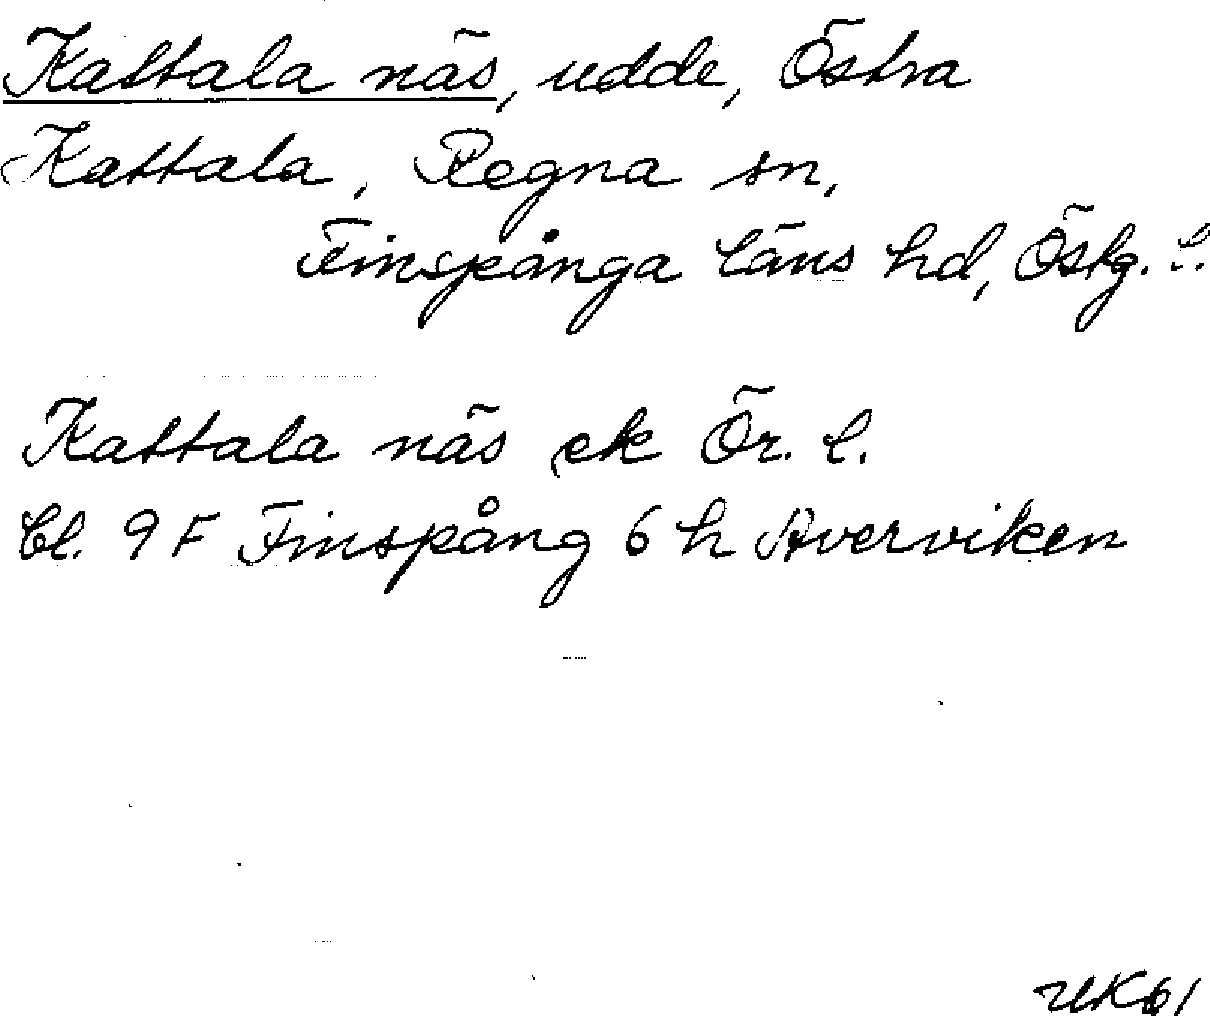 Kattala näs, udde, Östra
Kattala, Regna sn,
Finspånga läns hd, Östg. l.
Kattala näs ek Ör. l.
bl. 9 F Finspång 6 h Averviken
UK61